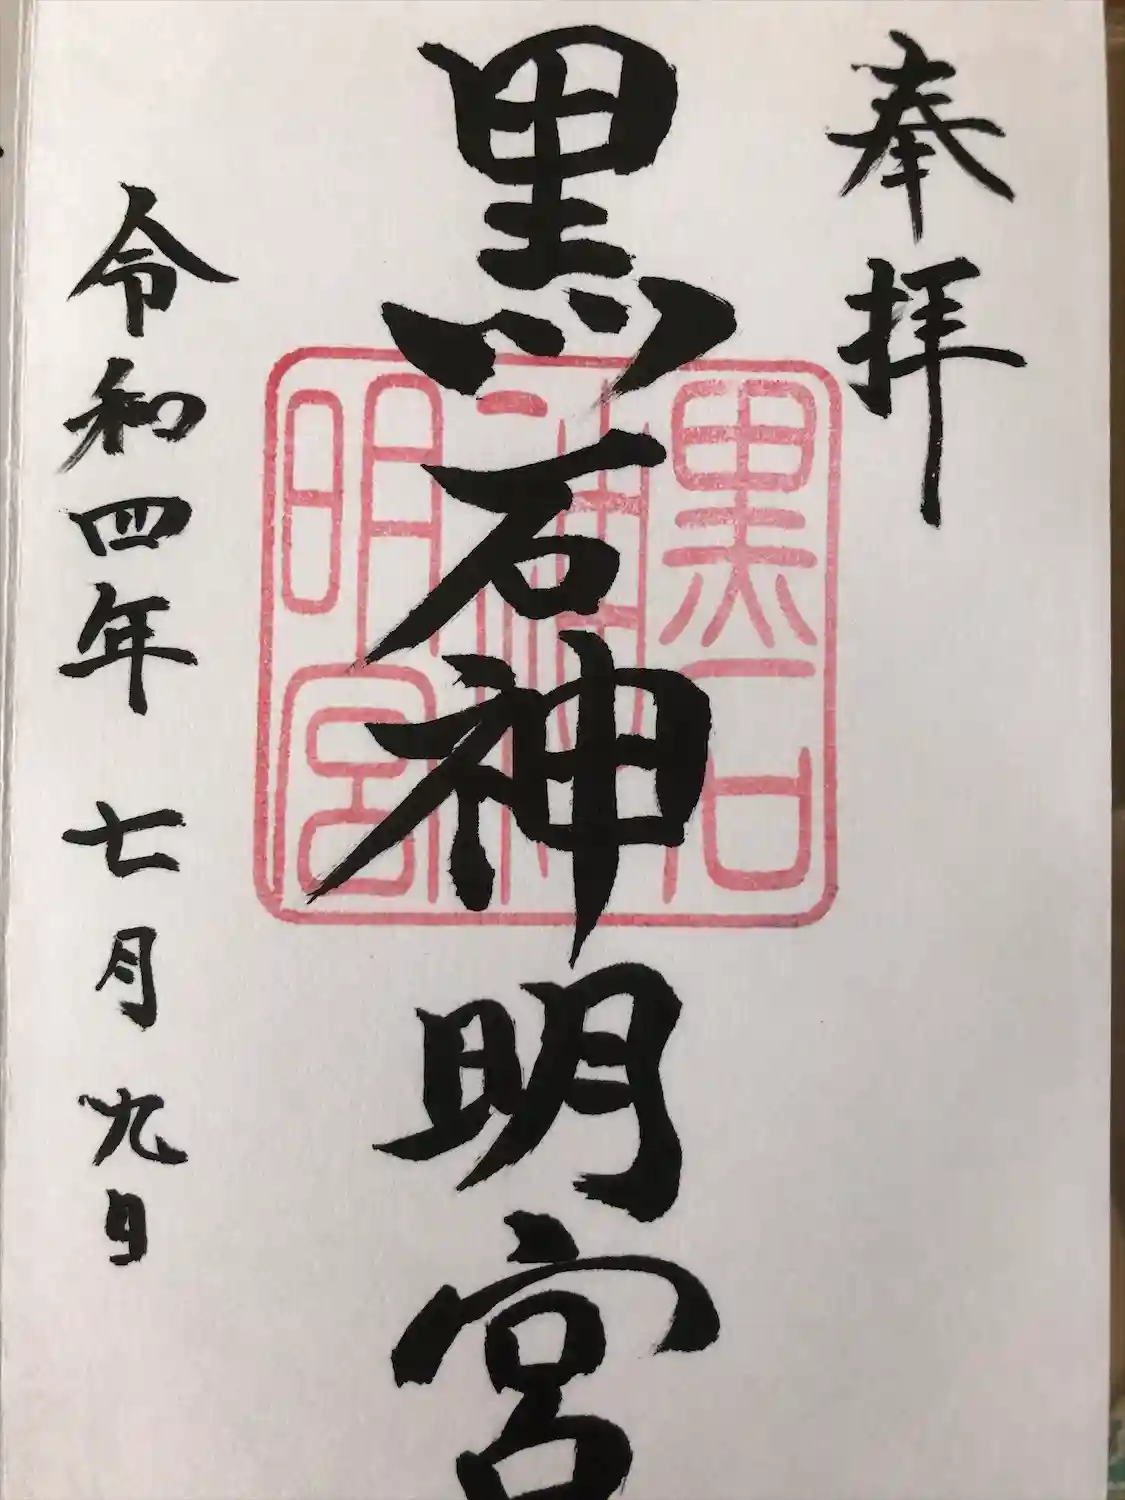 奉拝
黒石神明宮
黒石
神
明宮
令和四年 七月九日